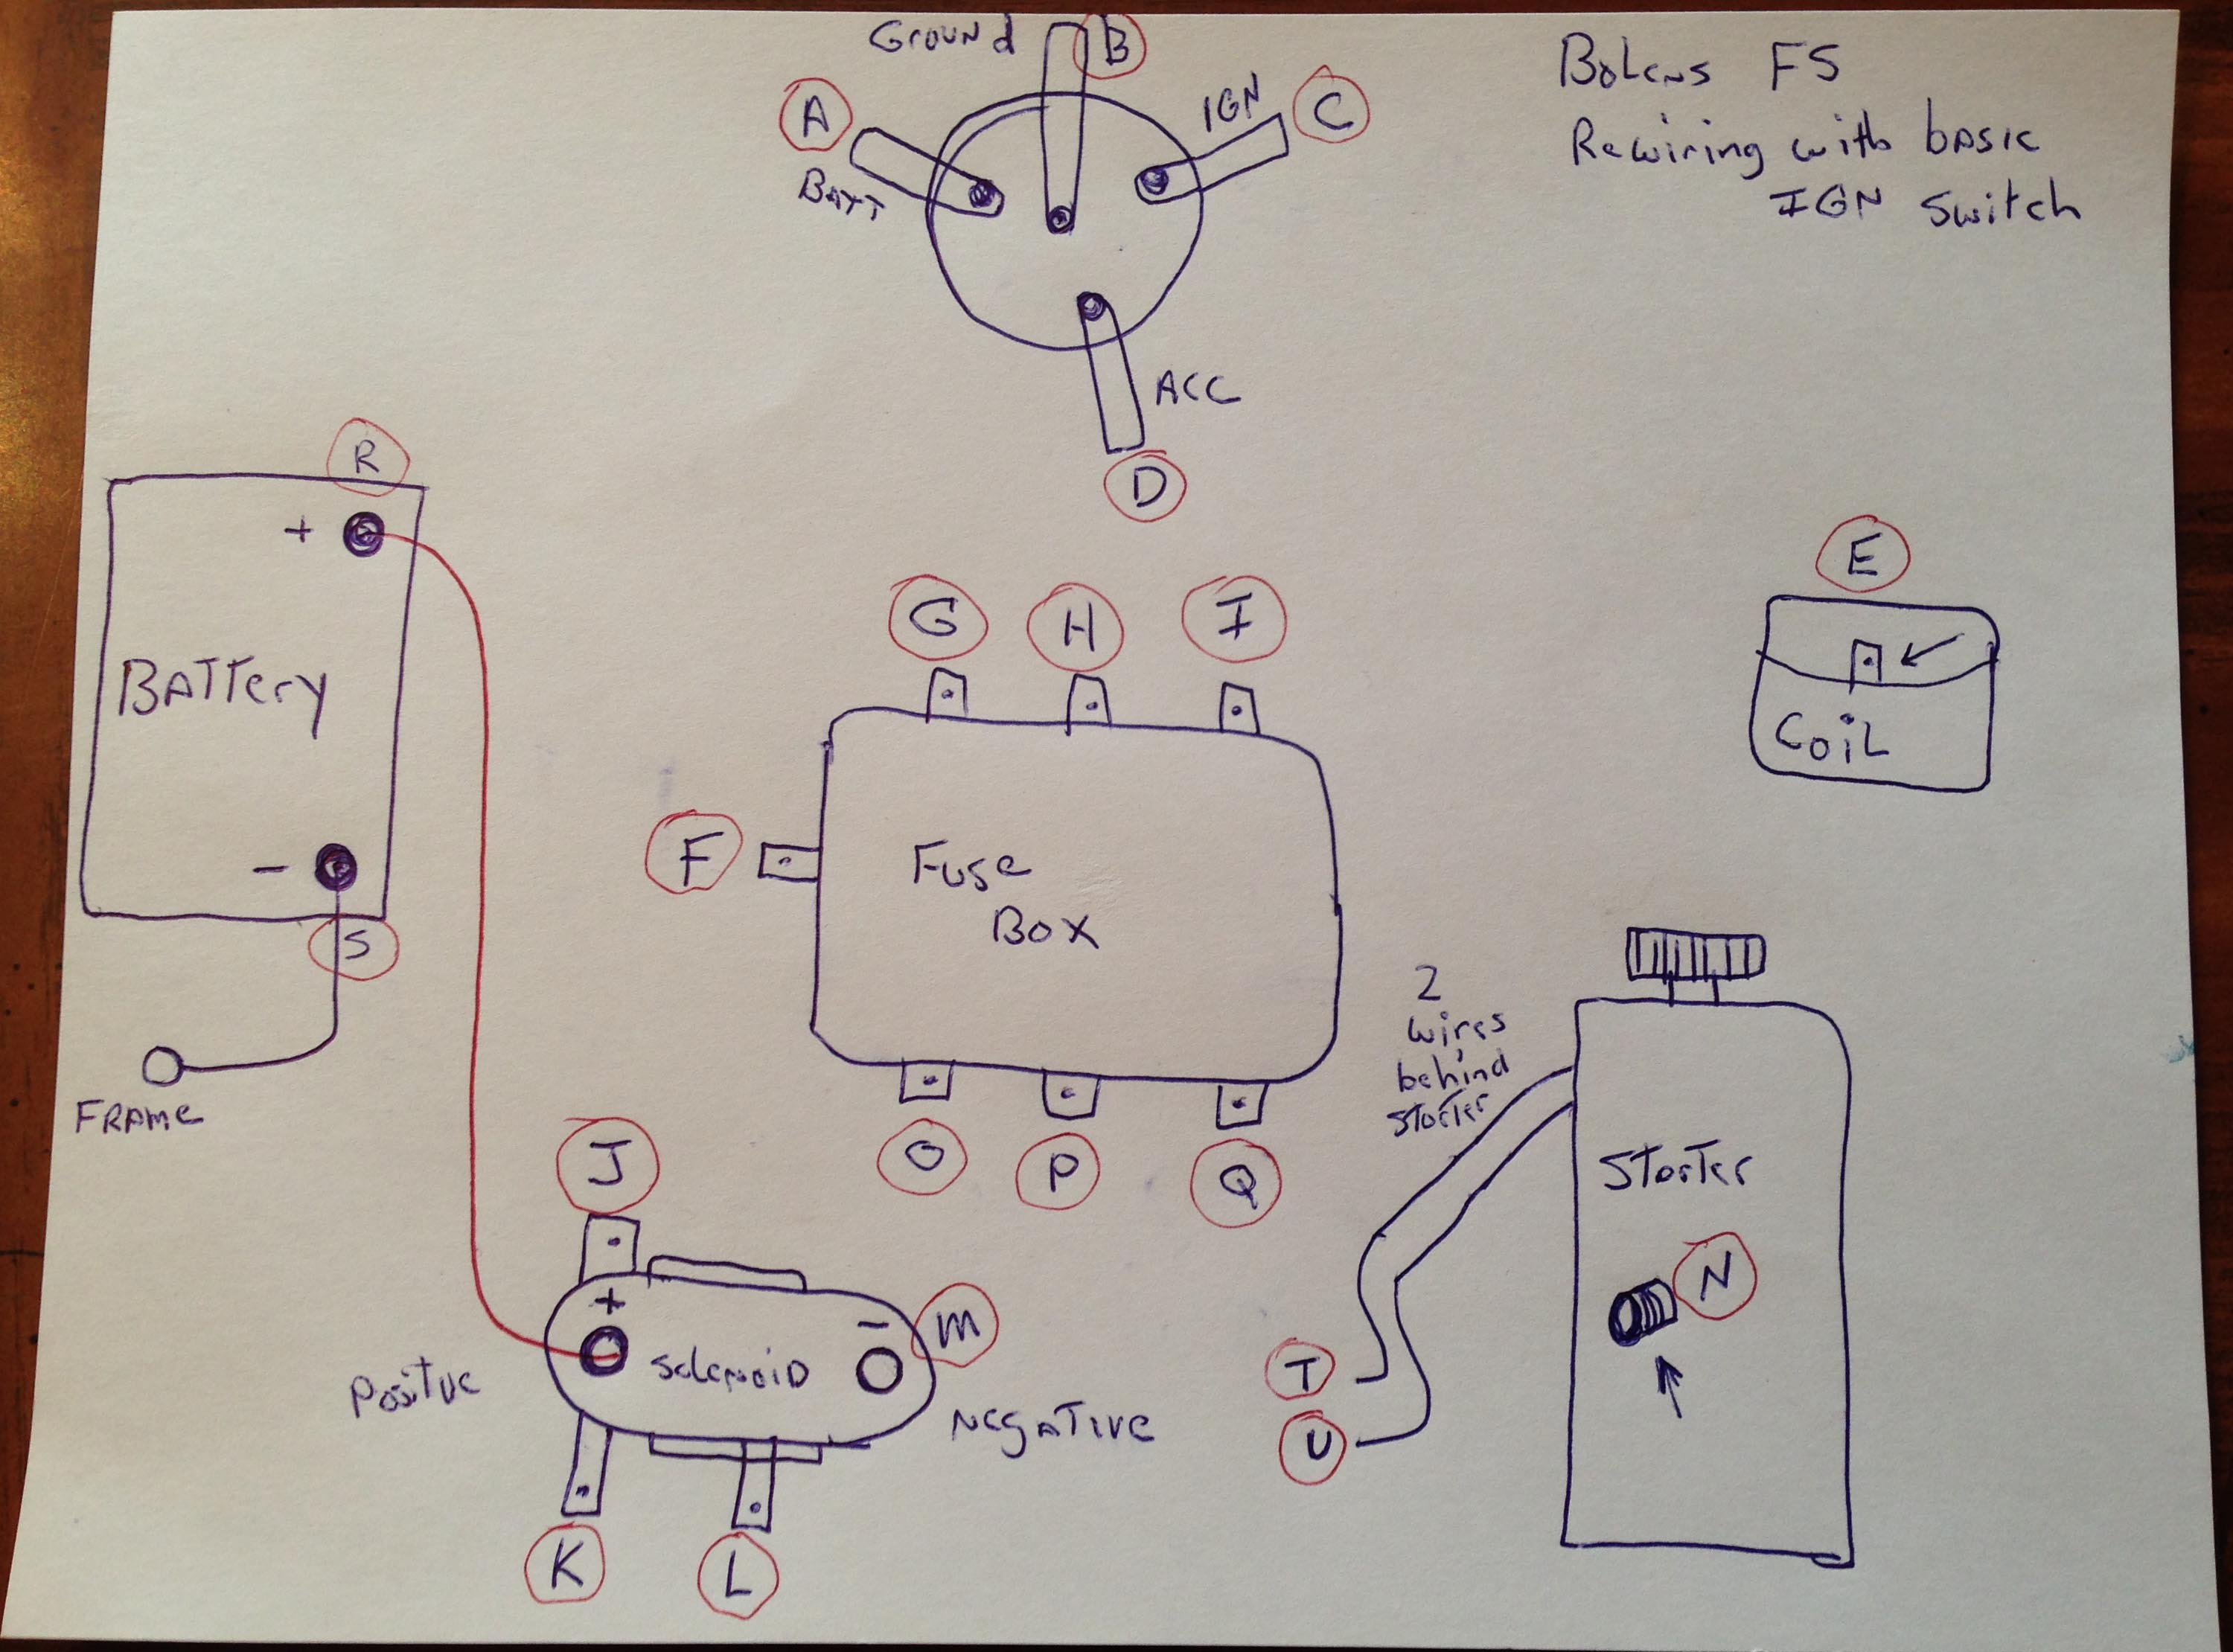 Ground
B
A
BATT
IGN
C
ACC
D
Bolens FS
Rewiring with basic
IGN Switch
R
+
BATTery
-
S
FRAMe
E
CoiL
G
H
I
F
Fuse
Box
O
P
Q
2
wires
behind
Storter
Storter
N
T
U
J
+
-
M
Solenoid
Positve
NegATive
K
L